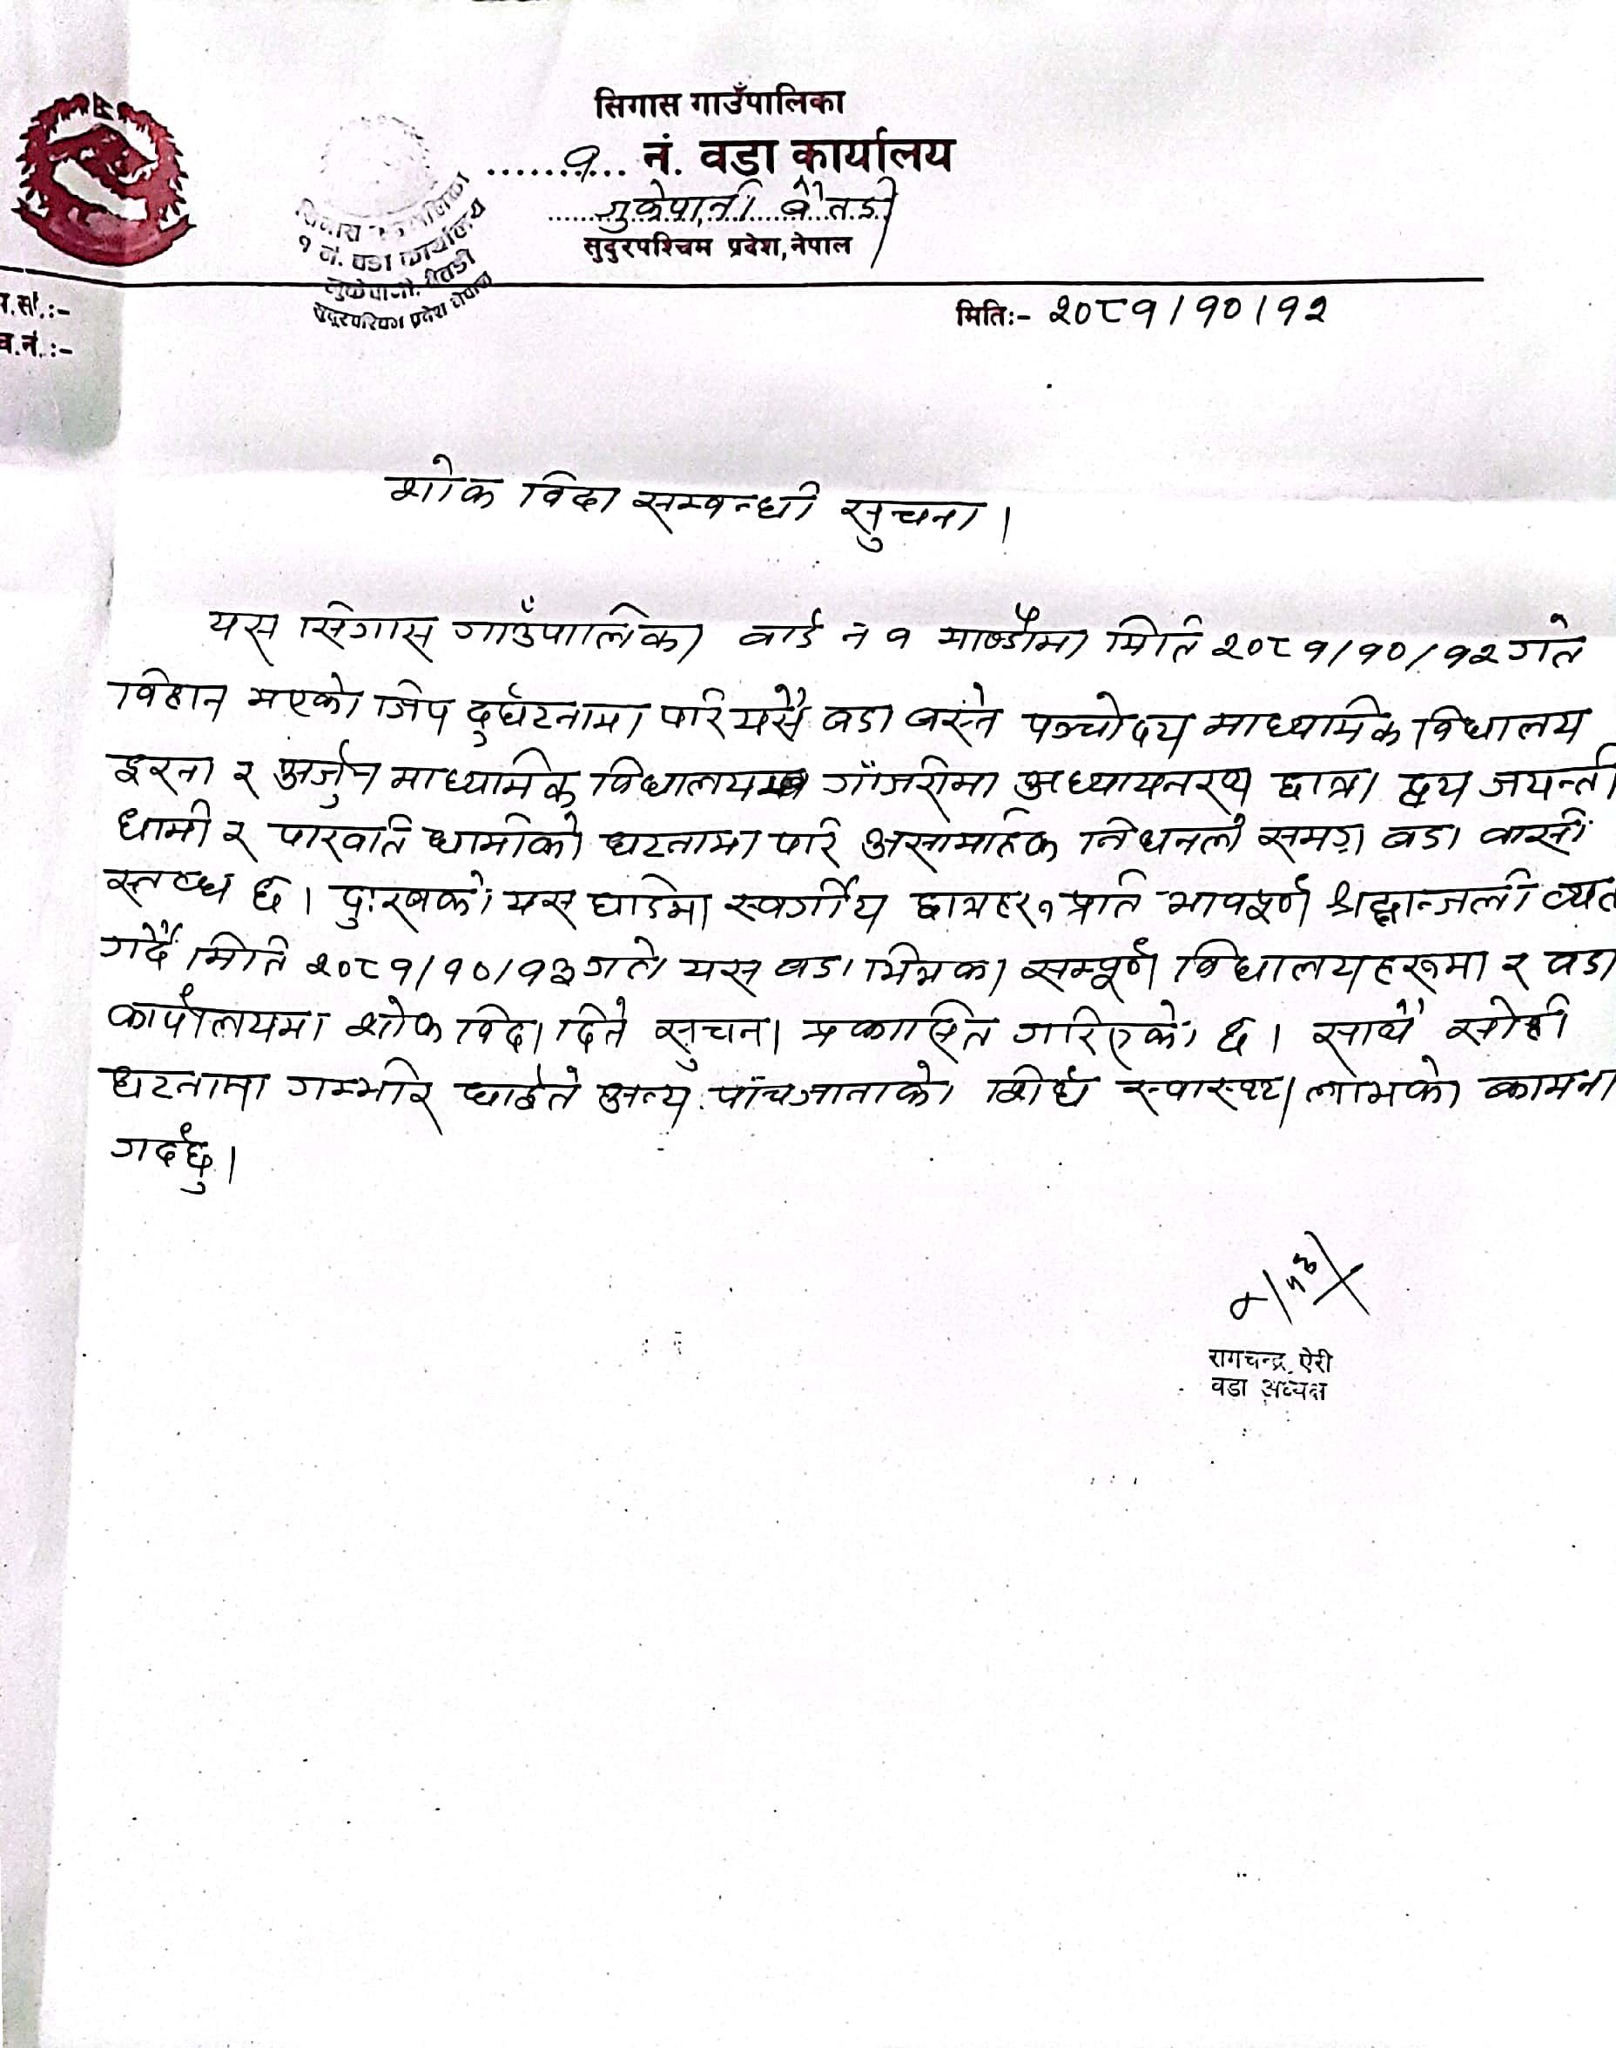 सिगास गाउँपालिका
१ नं. वडा कार्यालय
गुकेपानी बैतडी
सुदुरपश्चिम प्रदेश, नेपाल
१ नं. वडा कार्यालय
सुदुरपश्चिम प्रदेश नेपाल
प.सं.:-
च.नं.:-
मिति:- २०८१/१०/१२
शोक विदा सम्बन्धी सुचना।
यस सिगास गाउँपालिका वार्ड न १ माण्डौमा मिति २०८१/१०/१२ गते
विहान भएको जिप दुर्घटनामा परि यसै वडा बस्ने पञ्चोदय माध्यामिक विधालय
इरना र अर्जुन माध्यामिक विधालय गाँजरीमा अध्यायनरथ छात्रा द्वय जयन्ती
धामी र पारवति धामीको घटनामा परि असामाहिक निधनले समग्र वडा वासी
स्तब्ध छ। दुःखको यस घडिमा स्वर्गीय छात्राहरु प्रति भावपूर्ण श्रद्धान्जली व्यत
गर्दै मिति २०८१/१०/१३ गते यस वडा भित्रका सम्पूर्ण विधालयहरूमा र वडा
कार्यालयमा शोक विदा दिने सुचना प्रकासित गरिएको छ। साथै सोही
घटनामा गम्भीर घाईते अन्य पाँचजानाको शिघ्र स्वास्थ्य लाभको कामना
गर्दछु।
रामचन्द्र ऐरी
वडा अध्यक्ष